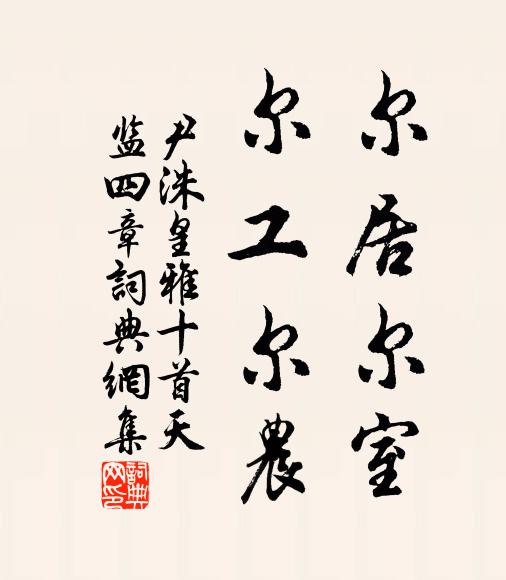 尔居尔室
尔工尔農
尹洙皇雅十首天
监四章詞典網集
詞典网印